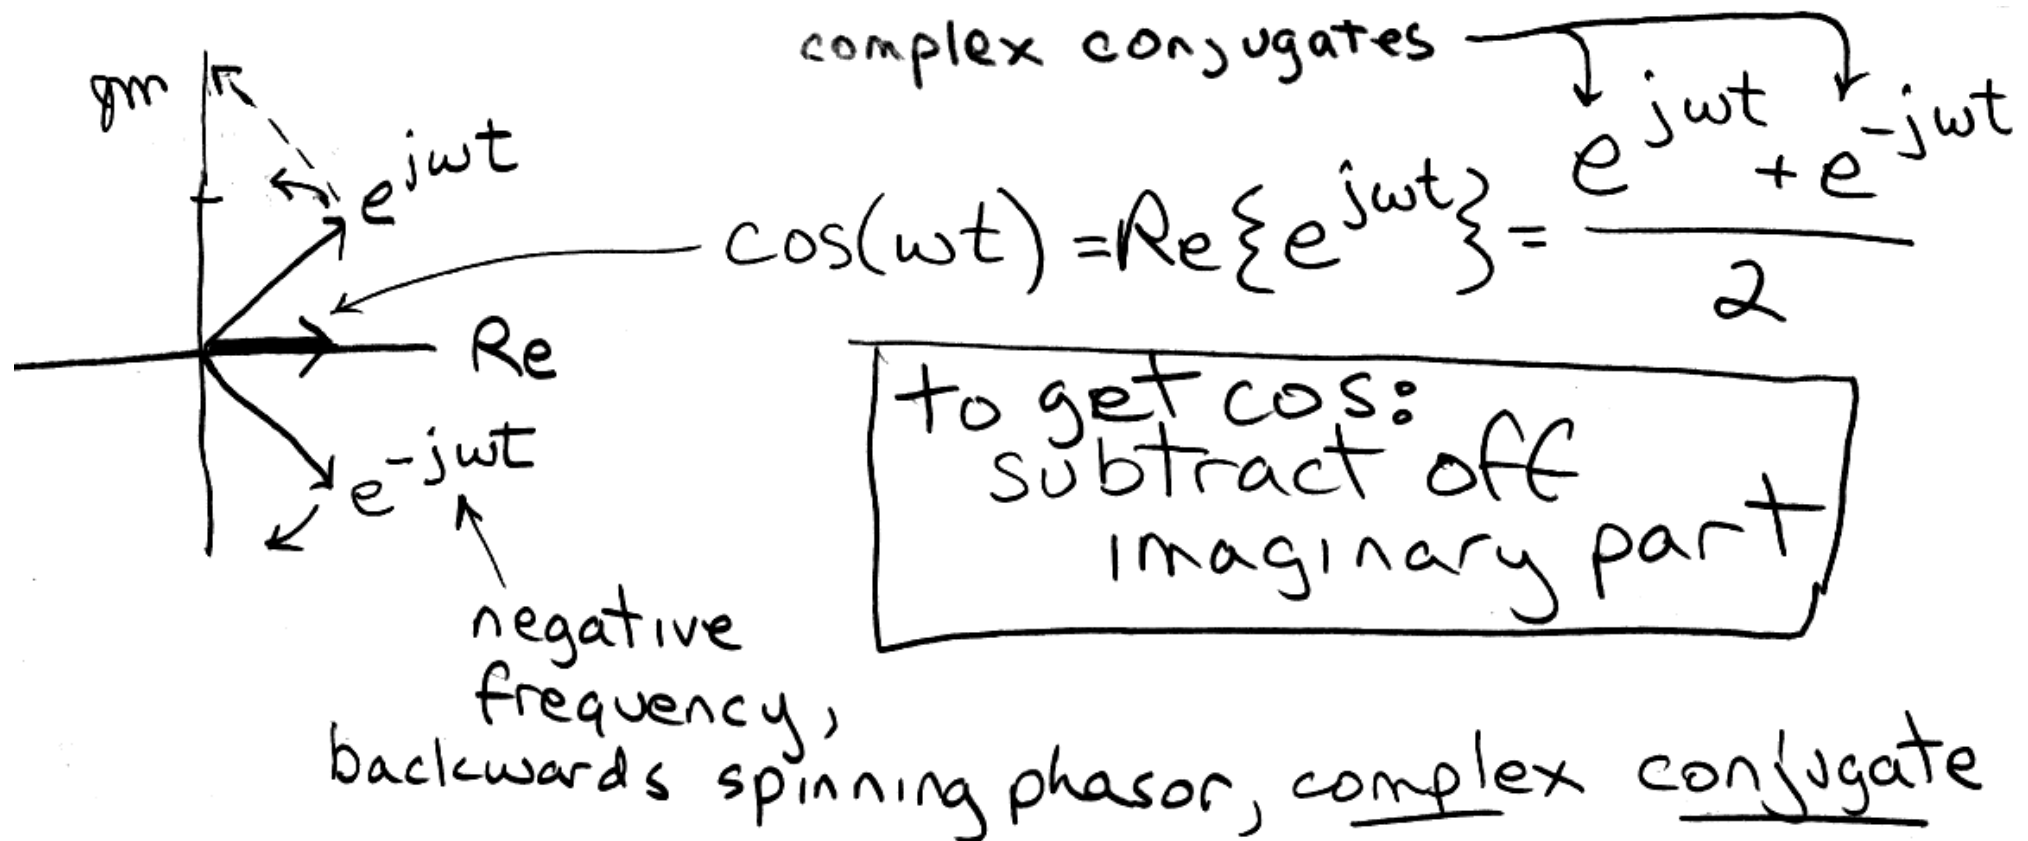 complex conjugates
Im
e^{jωt}
cos(ωt) = Re{e^{jωt}} = \frac{e^{jωt} + e^{-jωt}}{2}
Re
e^{-jωt}
to get cos:
subtract off
imaginary part
negative
frequency,
backwards spinning phasor, complex conjugate